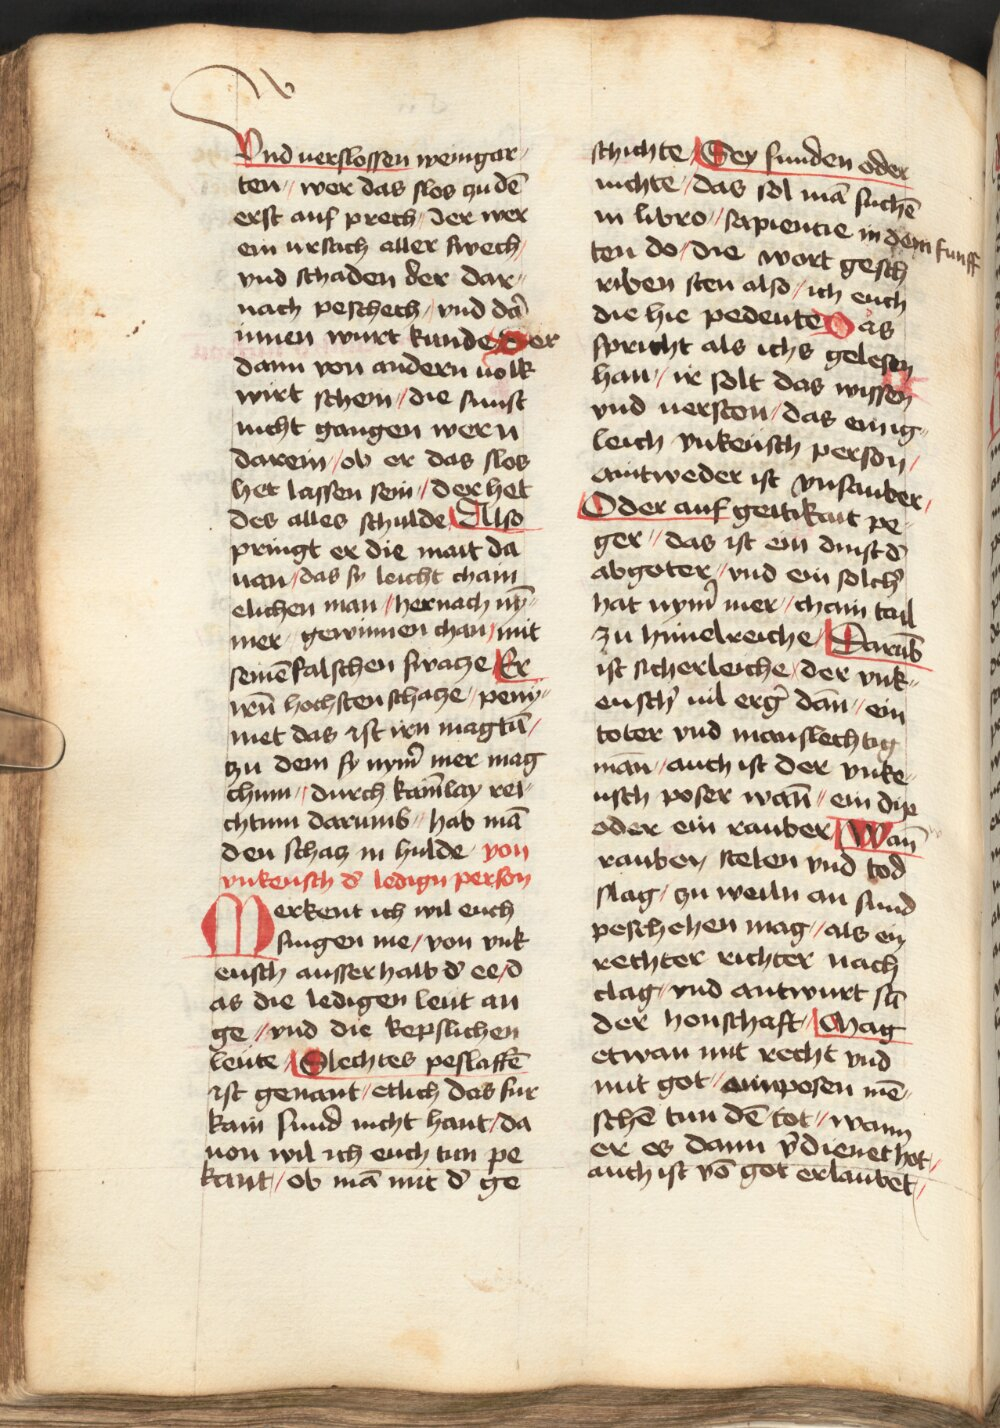 Vnd uerslossen weingar⸗
ten // wer das slos zu dē
erst auf prech / der wer
ein ursach aller swech /
vnd schaden der dar⸗
nach peschech / vnd da͛
innen wurt kunde Der
dann von andern uolk
wirt schein / die sunst
nicht gangen wern
darein / ob er das slos
het lassen sein // der het
des alles schulde Also
pringt er die mait da
uan / das sy leicht chain
elichen man / hernach ny̅⸗
mer gewinnen chan / mit
seinē falschen swatze Er
irn̄ hochsten schatze / peny⸗
met das ist irn magtū /
zu dem sy nym͛ mer mag
chum // durch kain͛lay rei⸗
chtum darumb // hab mā
den schatz in hulde von
vnkeusch d͛ ledign person
Merkent ich wil euch
singen me / von vnk
eusch ausserhalb d͛ ee / d
as die ledigen leut an
ge // vnd die kepslichen
leute / Slechtes peslaffē
ist genant / etlich das fur
kain sund nicht hant / da
uon wil ich euch tun pe
kant // ob mā mit d͛ ge
schichte / Sey sunden oder
nichte / das sol mā suchē
in libro // sapiencie in dem funff
ten do / die wort gesch
riben sten also / ich euch
die hie pedeute Das
spricht als ichs gelesen
han / ir solt das wissen
vnd uersten / das einig⸗
leich vnkeusch person /
aintweder ist vnsauber /
Oder auf geitikait pe⸗
ger // das ist ein dinst d͛
abgoter // vnd ein solch͛
hat nym͛ mer / chain tail
zu himelreiche / Darūb
ist sicherleiche / der vnk⸗
eusch͛ uil erg͛ dan̄ // ein
toter vnd manslechtig
man̄ / auch ist der vnke⸗
usch poser wan̄ // ein dip
oder ein rauber / Wan̄
rauben stelen vnd tod
slag / zu weiln an sund
peschehen mag // als ein
rechter richter nach
clag / vnd antwurt stā
der honschaft / Mag
etwan mit recht vnd
mit got / ainposen mē⸗
schē tun dē tot // wann
er es dann v͛dienet hot /
auch ist vō got erlaubet /